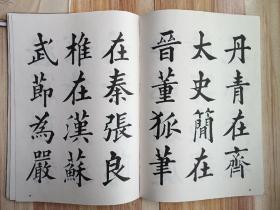 丹青在齊
太史簡在
晉董狐筆
在秦張良
椎在漢蘇
武節為嚴